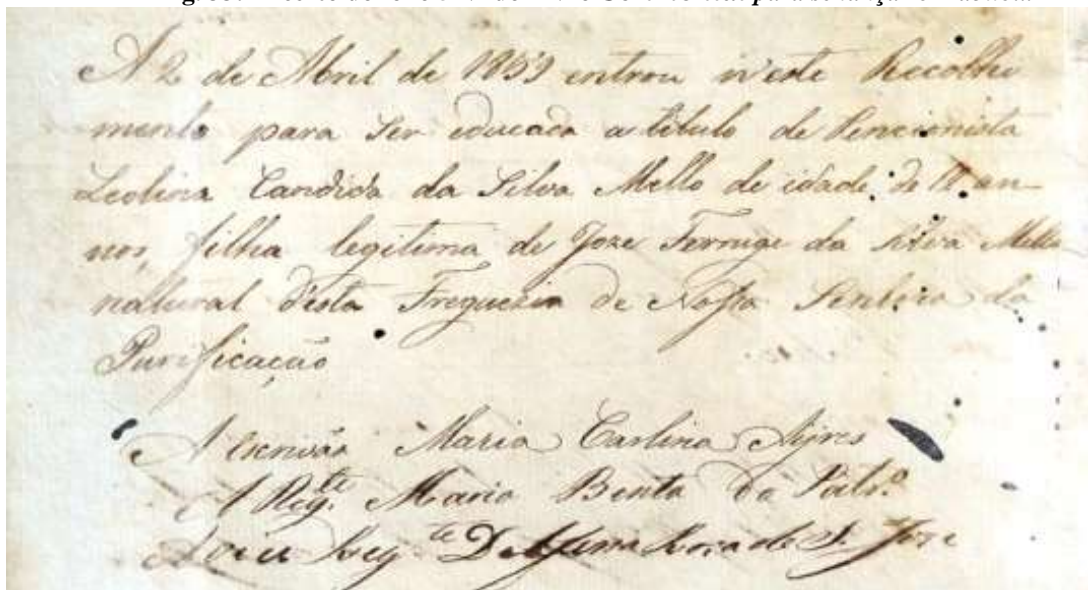 A 2 de Abril de 1859 entrou n'este Recolhi
mento para ser educada a titulo de Pencionista
Leolina Candida da Silva Mello de idade de an-
nos, filha legitima de Joze da Silva Mello
natural d'esta Freguezia de Nossa Senhora da
Purificação
A Escrivão Maria Carlina Ayres
A Reg.te Maria Benta do Patr.º
A vice Reg.te Delfina Roza de S. Joze